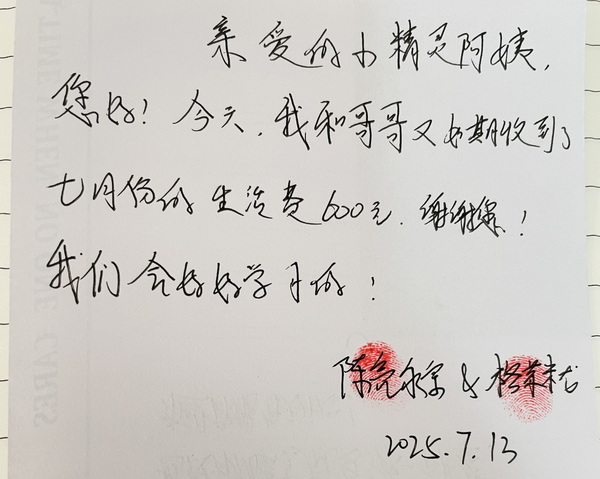 亲爱的小精灵阿姨，
您好！今天，我和哥哥又如期收到了
七月份的生活费600元，谢谢您！
我们会好好学习的！
陈 &
2025.7.13
A TIME WHEN NO ONE CARES